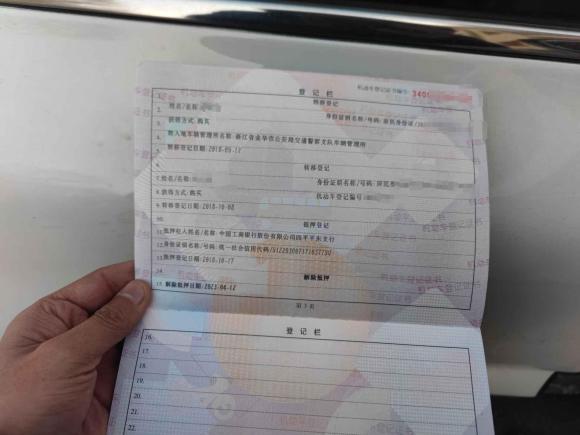 登记栏
机动车登记证书编号: 3400
1.
转移登记
2. 姓名/名称:
身份证明名称/号码: 居民身份证/
3. 获得方式: 购买
4. 转入地车辆管理所名称: 浙江省金华市公安局交通警察支队车辆管理所
5. 转移登记日期: 2018-09-12
6.
转移登记
7. 姓名/名称:
身份证明名称/号码: 居民身
8. 获得方式: 购买
机动车登记编号:
9. 转移登记日期: 2018-10-08
10.
抵押登记
11. 抵押权人姓名/名称: 中国工商银行股份有限公司四平平东支行
12. 身份证明名称/号码: 统一社会信用代码/
13. 抵押登记日期: 2018-10-17
14.
解除抵押
15. 解除抵押日期: 2023-04-12
第 3 页
登记栏
16.
17.
18.
19.
20.
21.
22.